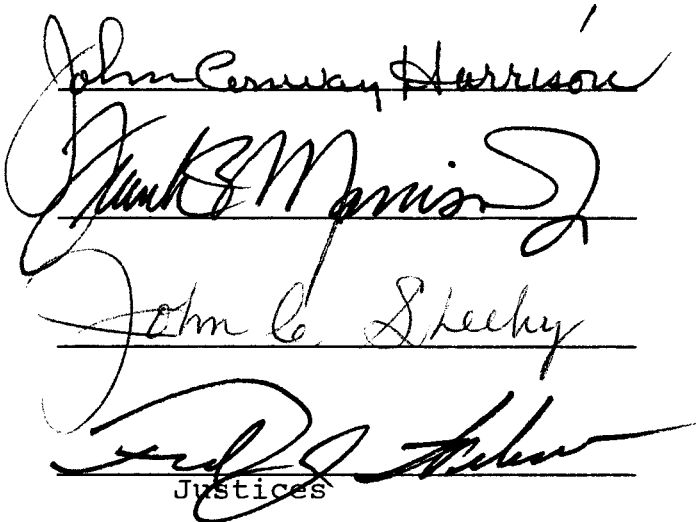 John Conway Harrison
Frank B Morrison Jr
John C Sheehy
Fred J Weber
Justices